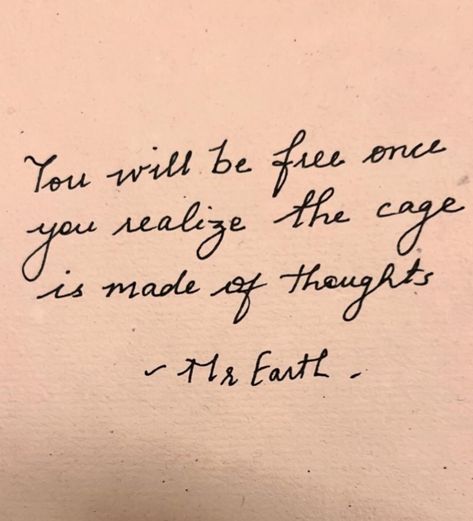 You will be free once
you realize the cage
is made of thoughts
~ Mr Earth -